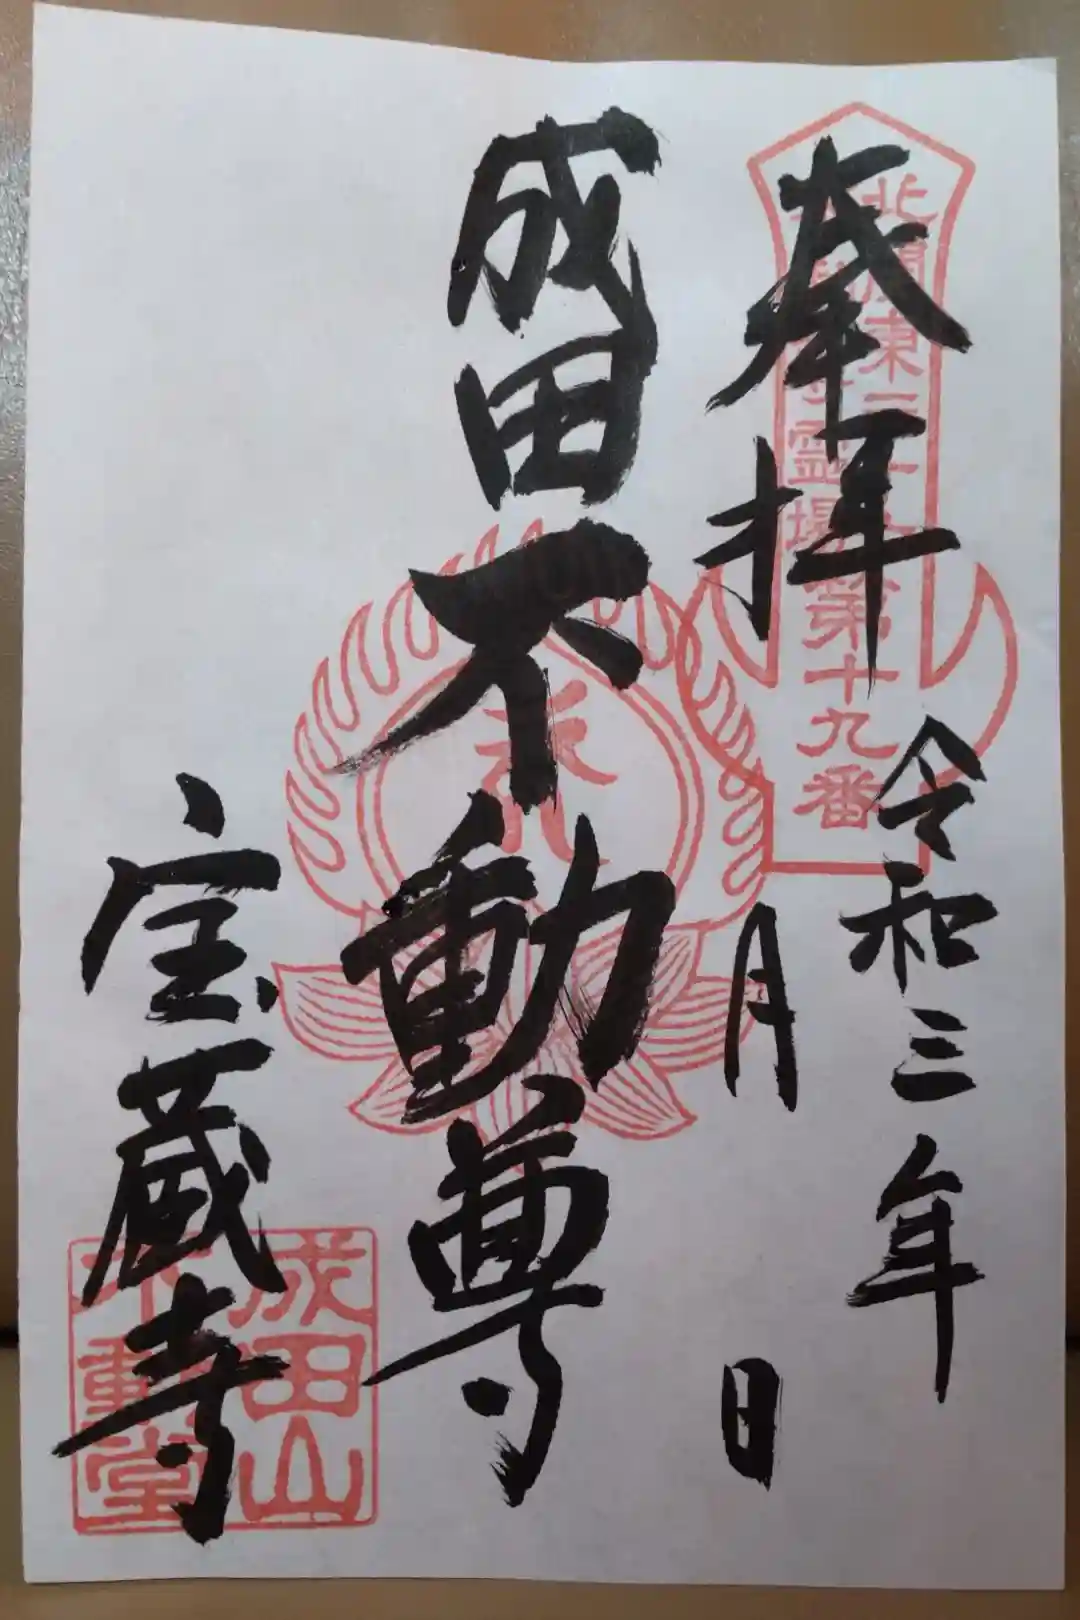 奉拝
北関東三十六
不動尊霊場第十九番
令和三年
月 日
成田不動尊
宝蔵寺
成田山
不動堂